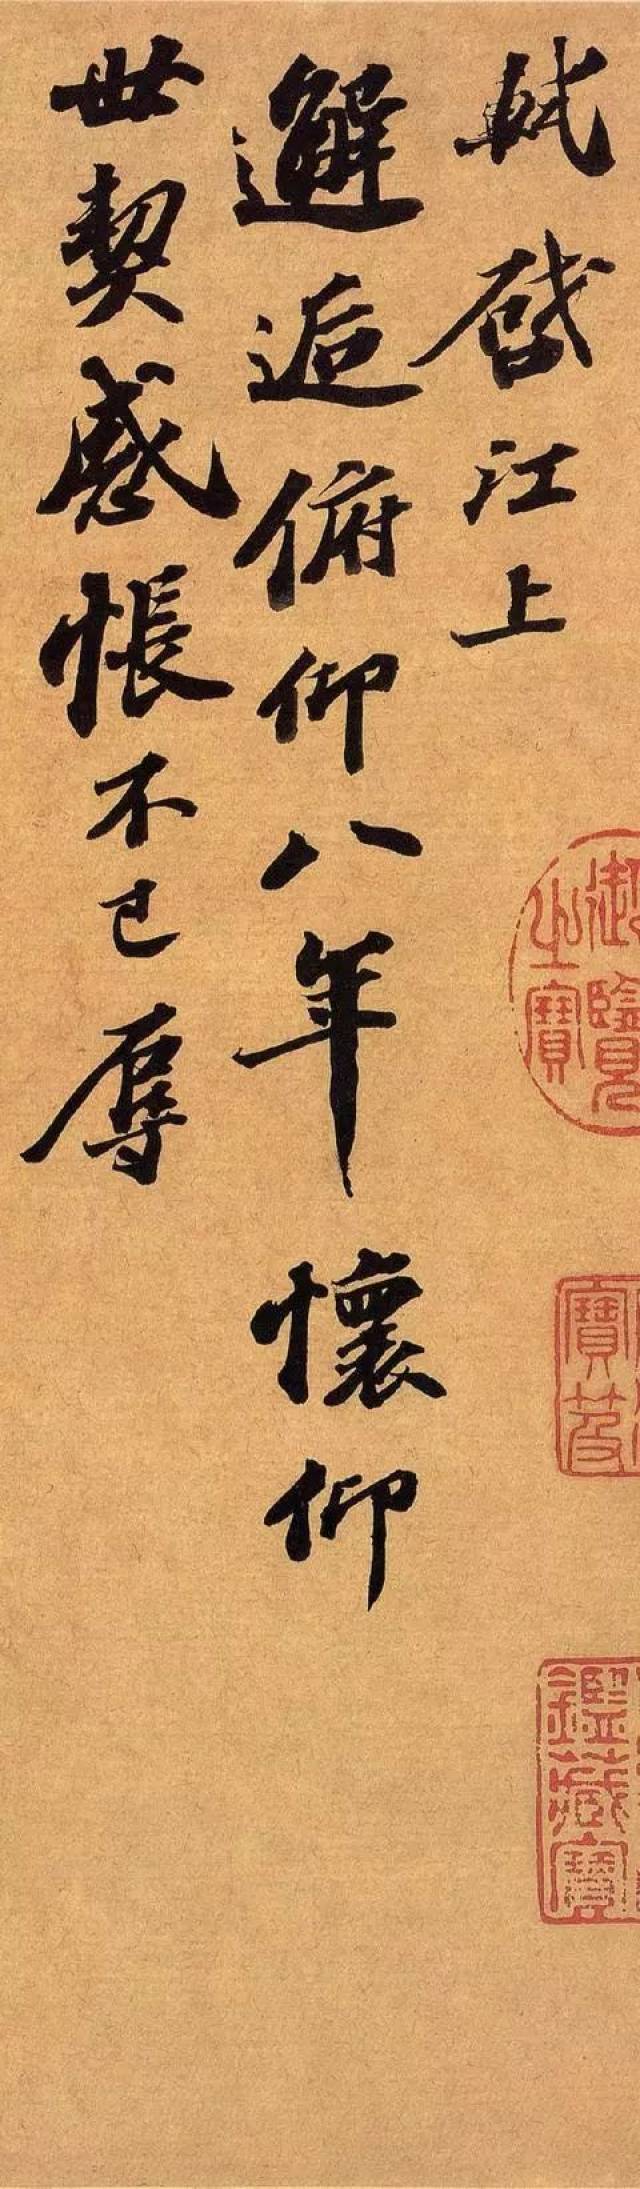 軾啓江上
邂逅俯仰八年懷仰
世契感悵不已辱
御覽
之寶
寶笈
鑑藏寶